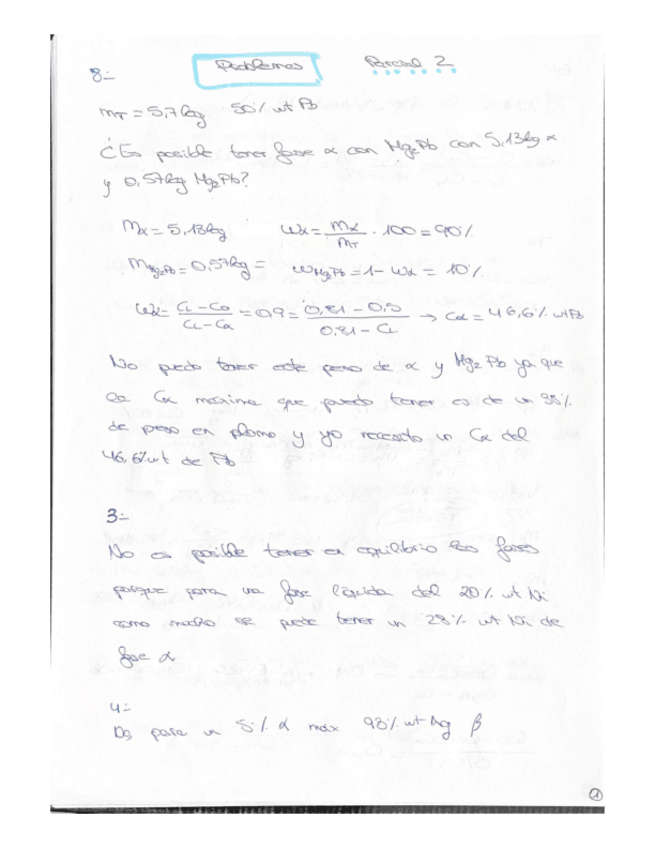 Problemas Parcial 2
8:-
mT = 5,7kg 50% wt Pb
¿Es posible tener fase α con Mg2Pb con 5,13kg α
y 0,57kg Mg2Pb?
mα = 5,13kg Wα = mα/mT · 100 = 90%
mMg2Pb = 0,57kg = WMg2Pb = 1 - Wα = 10%
Wα = CL - C0 / CL - Cα = 0,9 = 0,81 - 0,5 / 0,81 - CL → Cα = 46,6% wt Pb
No puedo tener este peso de α y Mg2Pb ya que
la Cα máxima que puedo tener es de un 38%
de peso en plomo y yo necesito un Cα del
46,6% wt de Pb
3:-
No es posible tener en equilibrio fases
porque para una fase líquida del 20% wt Ni
como mucho se puede tener un 28% wt Ni de
fase α
4:-
para un 5% α max 98% wt Ag β
a